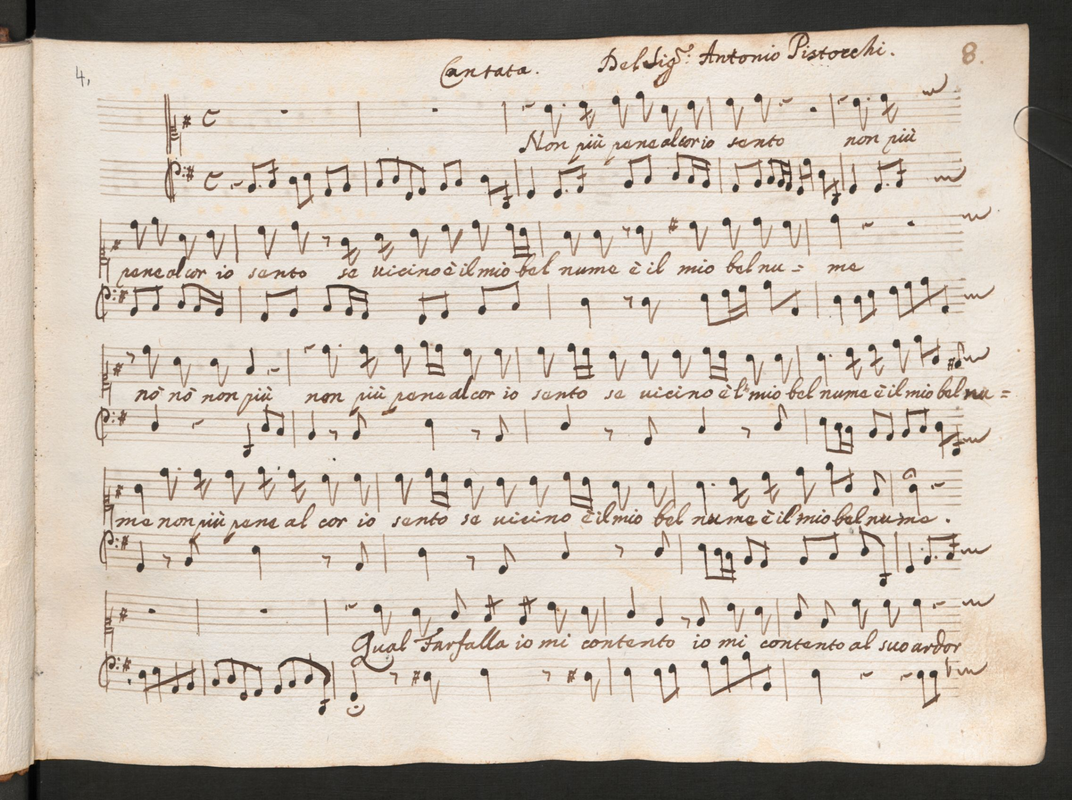 4, Cantata. Del Sig.r Antonio Pistocchi. 8.
Non più pene al cor io sento non più
pene al cor io sento se vicino è il mio bel nume è il mio bel nu= me
nò nò non più non più pene al cor io sento se vicino è l' mio bel nume è il mio bel nu=
me non più pene al cor io sento se vicino è il mio bel nume è il mio bel nume.
Qual Farfalla io mi contento io mi contento al suo ardor